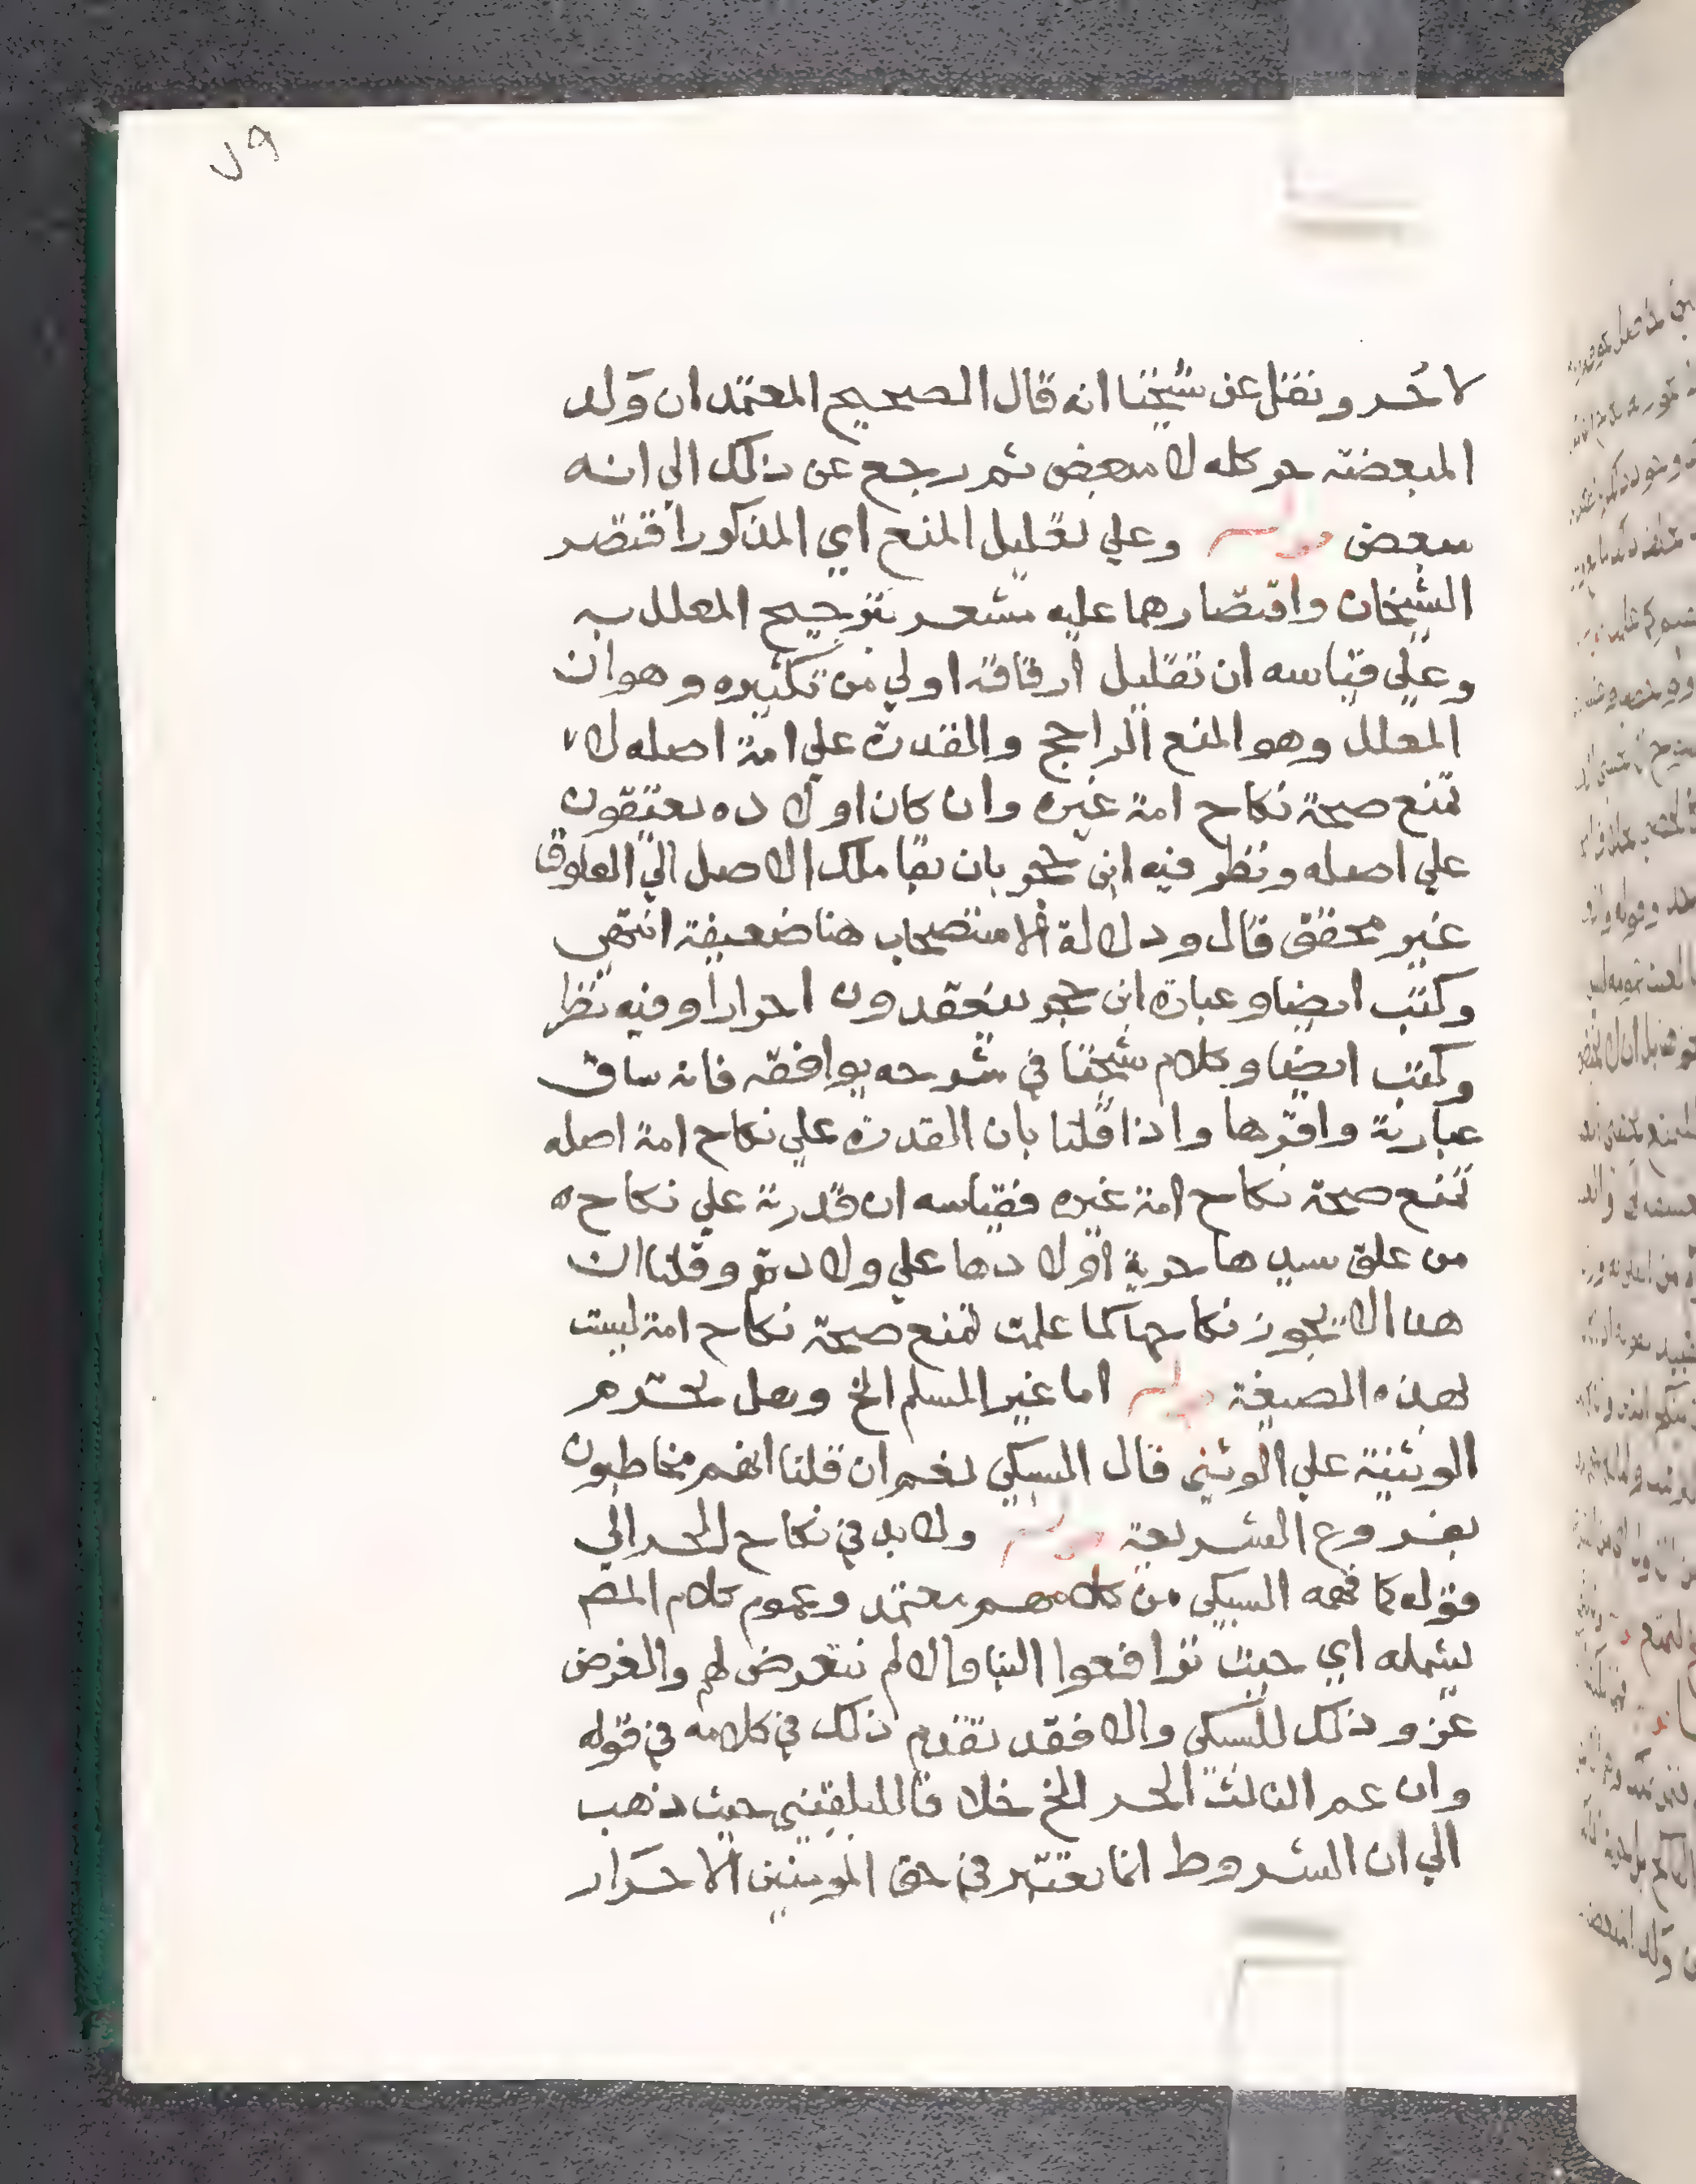 ٧٩
لاخر ونقل عن شيخنا انه قال الصحيح المعتمد ان ولد
المبعضة حر كله لا مبعض ثم رجع عن ذلك الي انه
مبعض قوله وعلي تعليل المنع اي المذكور اقتصر
الشيخان واقتصارهما عليه مشعر بترجيح المعلل به
وعلي قياسه ان تقليل ارقاقه اولي من تكثيره وهو ان
المعلل وهو المنع الراجح والقدرة علي امة اصله لا
تمنع صحة نكاح امة غيره وان كان اولاده يعتقون
علي اصله ونظر فيه ابن حجر بان بقا ملك الاصل الي العلوق
غير محقق قال ودلالة الاستصحاب هنا ضعيفة انتهي
وكتب ايضا وعبارة ابن حجر ينعقدون احرارا وفيه نظر
وكتب ايضا وكلام شيخنا في شرحه يوافقه فانه ساق
عبارته واقرها واذا قلنا بان القدرة علي نكاح امة اصله
تمنع صحة نكاح امة غيره فقياسه ان قدرته علي نكاح ه
من علق سيدها حرية اولادها علي ولادتهم وقلنا ان
هذا لا يجوز نكاحها كما علمت تمنع صحة نكاح امة ليست
بهذه الصيغة قوله اما غير المسلم الخ وهل تحرم
الوثنية علي الوثني قال السبكي نعم ان قلنا انهم مخاطبون
بفروع الشريعة قوله ولا بد في نكاح الحر الي
قوله كما فهمه السبكي من كلامهم معتمد وعموم كلام المص
يشمله اي حيث ترافعوا الينا والا لم نتعرض لهم والغرض
عزو ذلك للسبكي والا فقد تقدم ذلك في كلامه في قوله
وان عم الثالث الحر الخ خلافا للبلقيني حيث ذهب
الي ان الشروط انما تعتبر في حق المومنين الاحرار